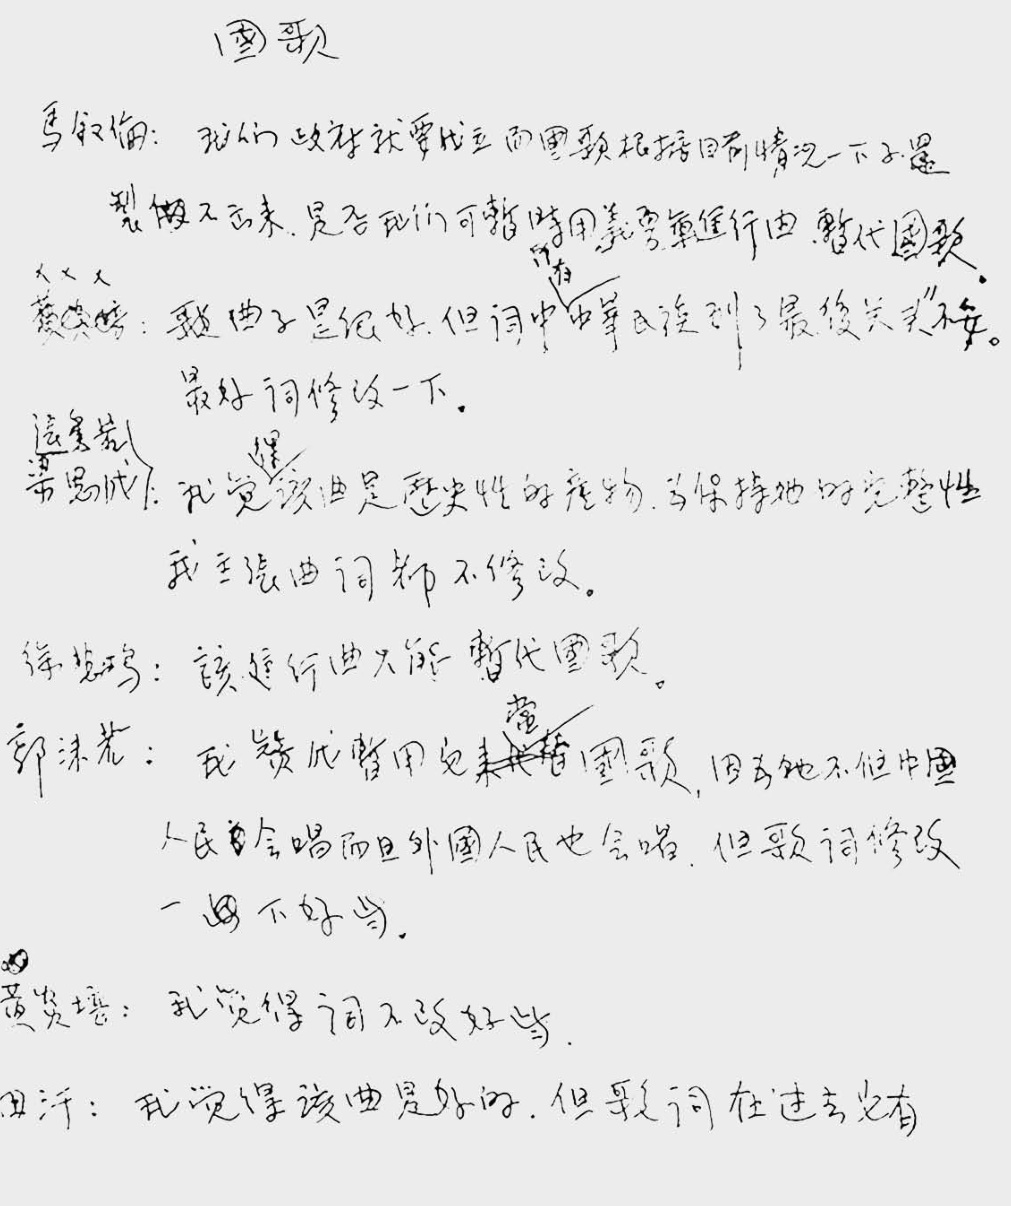 國歌
馬叙倫：我们政府就要成立而國歌根据目前情况一下子還
製做不出来.是否我们可暫時用義勇軍進行曲暫代國歌。
×××：歌曲子是很好.但词中所有中華民族到了最後关头"不妥。
最好词修改一下.
張奚若
梁思成：我觉得该曲是歷史性的產物.当保持她的完整性
我主張曲词都不修改。
徐悲鸿：該進行曲只能暫代國歌。
郭沫若：我赞成暫用它来當國歌,因为她不但中國
人民會唱而且外國人民也会唱.但歌词修改
一下好些.
黄炎培：我觉得词不改好些.
田汗：我觉得该曲是好的.但歌词在过去它有